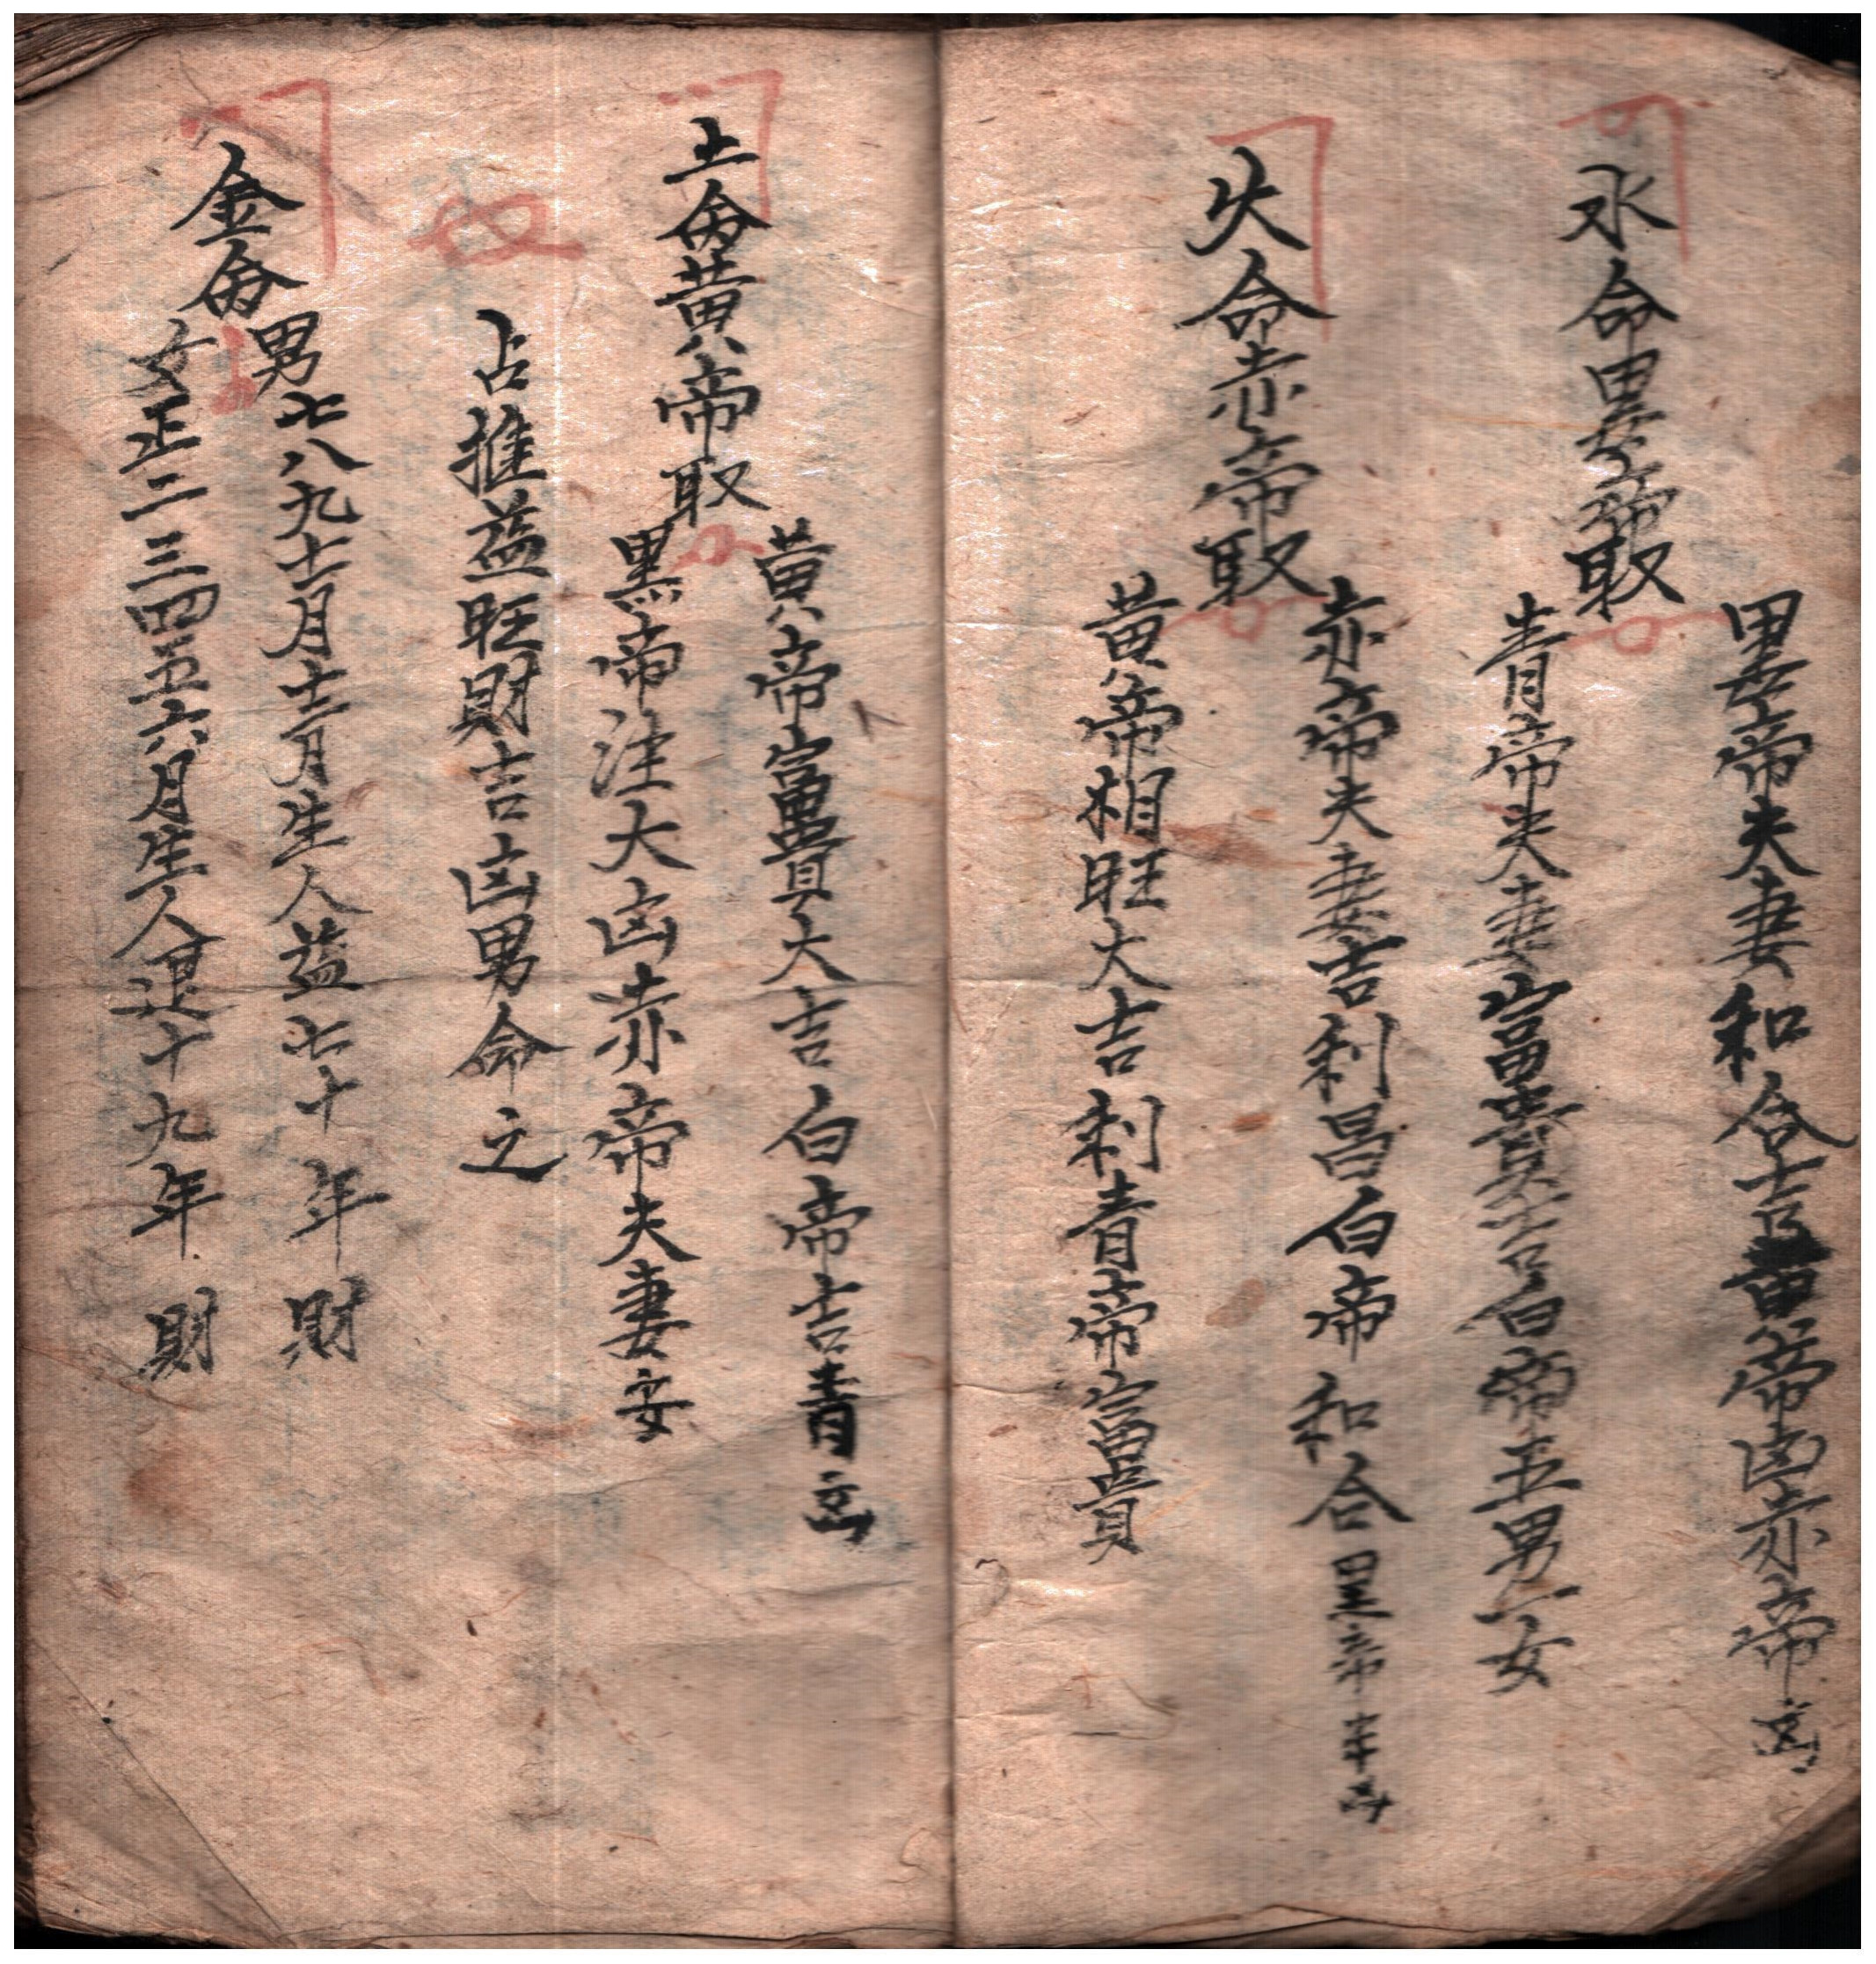 水命黑帝取
黑帝夫妻和合吉黃帝凶赤帝凶
青帝夫妻富貴吉白帝五男一女
火命赤帝取
赤帝夫妻吉利昌白帝和合黑帝半凶
黃帝相旺大吉利青帝富貴
土命黃帝取
黃帝富貴大吉白帝吉青凶
黑帝注大凶赤帝夫妻安
占推益旺財吉凶男命之
金命
男七八九十月十一月十二月生人益七十年財
女正二三四五六月生人退十九年財